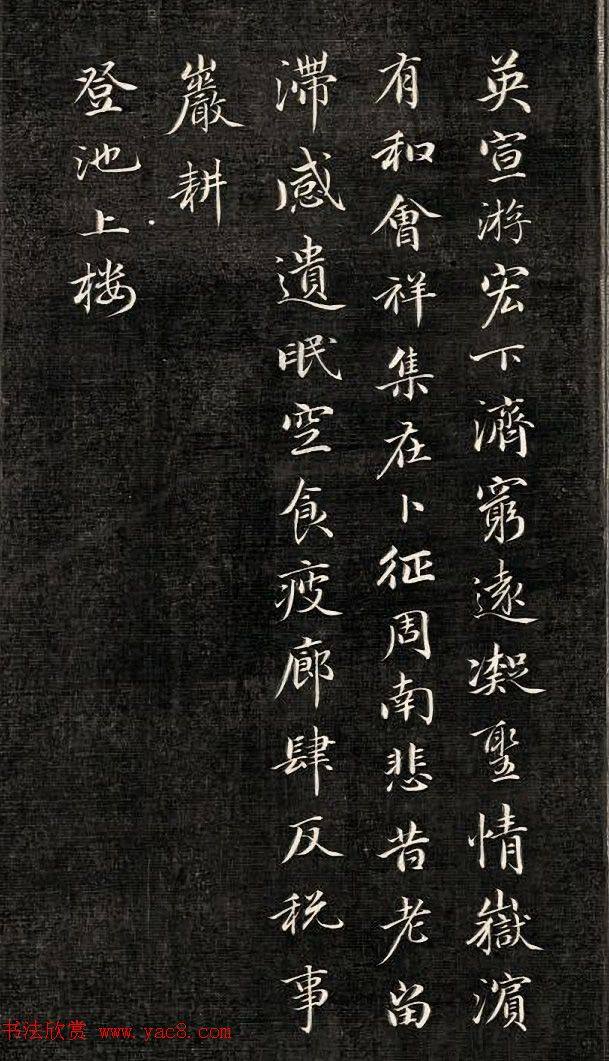 英宣游宏下濟窮遠凝聖情嶽濱
有和會祥集在卜征周南悲昔老留
滯感遺甿空食疲廊肆反税事
巖耕
登池上楼
书法欣赏 www.yac8.com